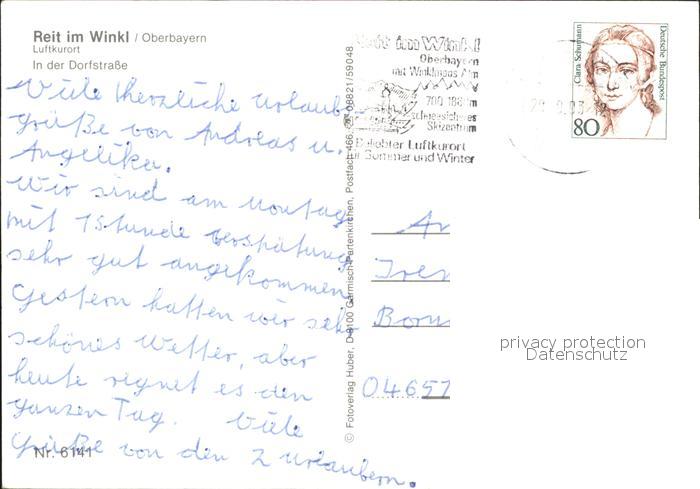 Reit im Winkl / Oberbayern
Luftkurort
In der Dorfstraße
Viele herzliche Urlaubs
grüße von Andreas u.
Angelika.
Wir sind am Montag
mit 1 Stunde Verspätung
sehr gut angekommen
Gestern hatten wir sehr
schönes Wetter, aber
heute regnet es den
ganzen Tag. Viele
Grüße von den 2 Urlaubern.
Nr. 6141
© Fotoverlag Huber, D-8100 Garmisch-Partenkirchen, Postfach 466, 08821/59048
Reit im Winkl
Oberbayern
mit Winklmoos Alm
700 1881m
schneesicheres
Skizentrum
Beliebter Luftkurort
für Sommer und Winter
Clara Schumann
Deutsche Bundespost
80
An
Born
04657
privacy protection
Datenschutz